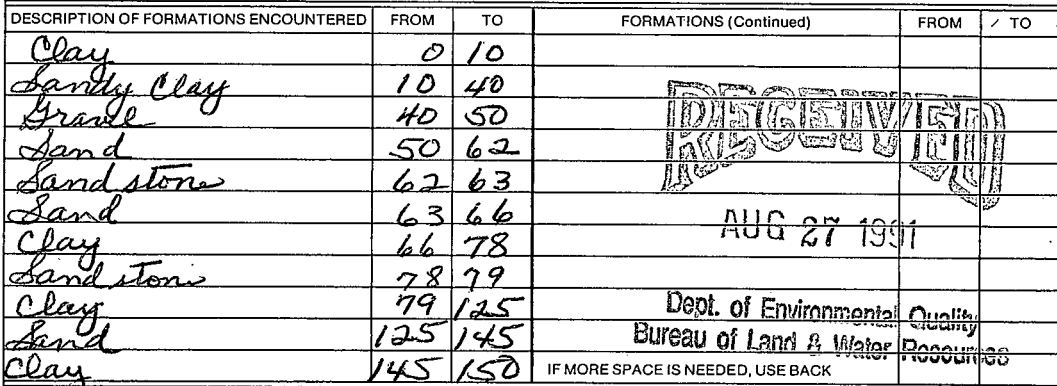 DESCRIPTION OF FORMATIONS ENCOUNTERED FROM TO FORMATIONS (Continued) FROM TO
Clay 0 10
Sandy Clay 10 40
Gravel 40 50
Sand 50 62
Sandstone 62 63
Sand 63 66
Clay 66 78
Sandstone 78 79
Clay 79 125
Sand 125 145
Clay 145 150
RECEIVED
AUG 27 1991
Dept. of Environmental Quality
Bureau of Land & Water Resources
IF MORE SPACE IS NEEDED, USE BACK